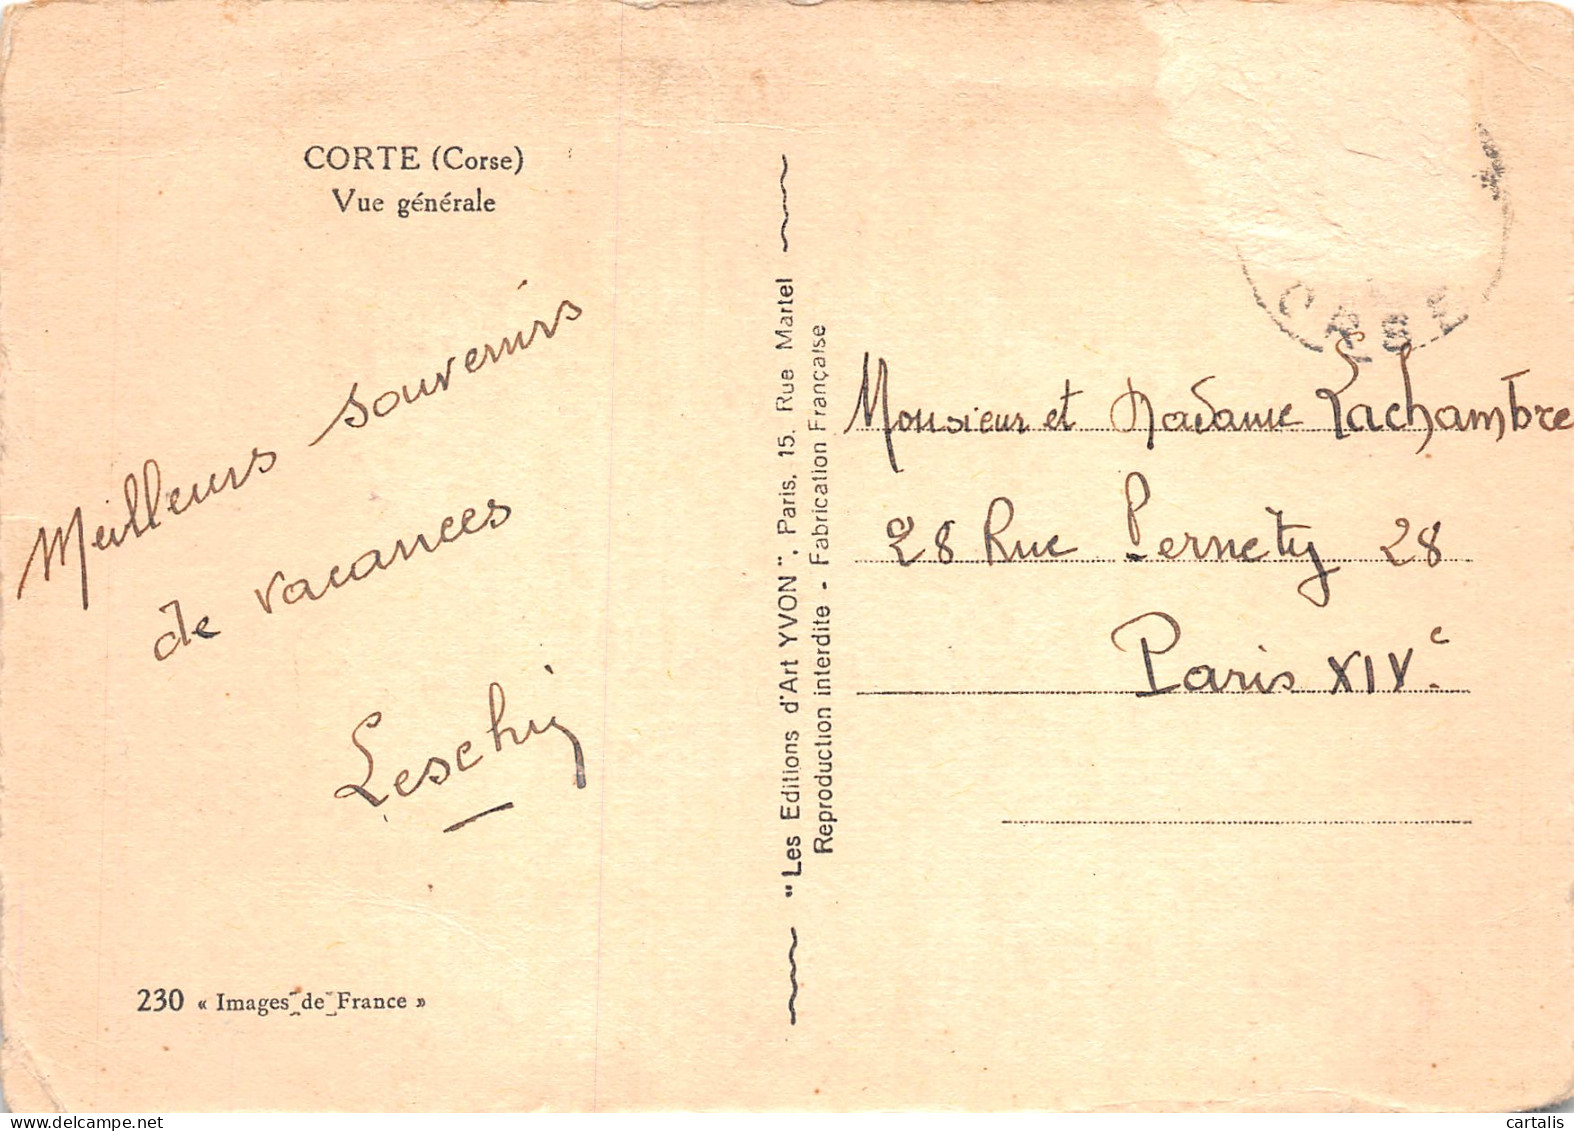 CORTE (Corse)
Vue générale
Meilleurs souvenirs
de vacances
Leschig
230 « Images de France »
"Les Editions d'Art YVON", Paris, 15, Rue Martel
Reproduction interdite - Fabrication Française
CORSE
Monsieur et Madame Lachambre
28 Rue Pernety 28
Paris XIVe.
delcampe.net
cartalis